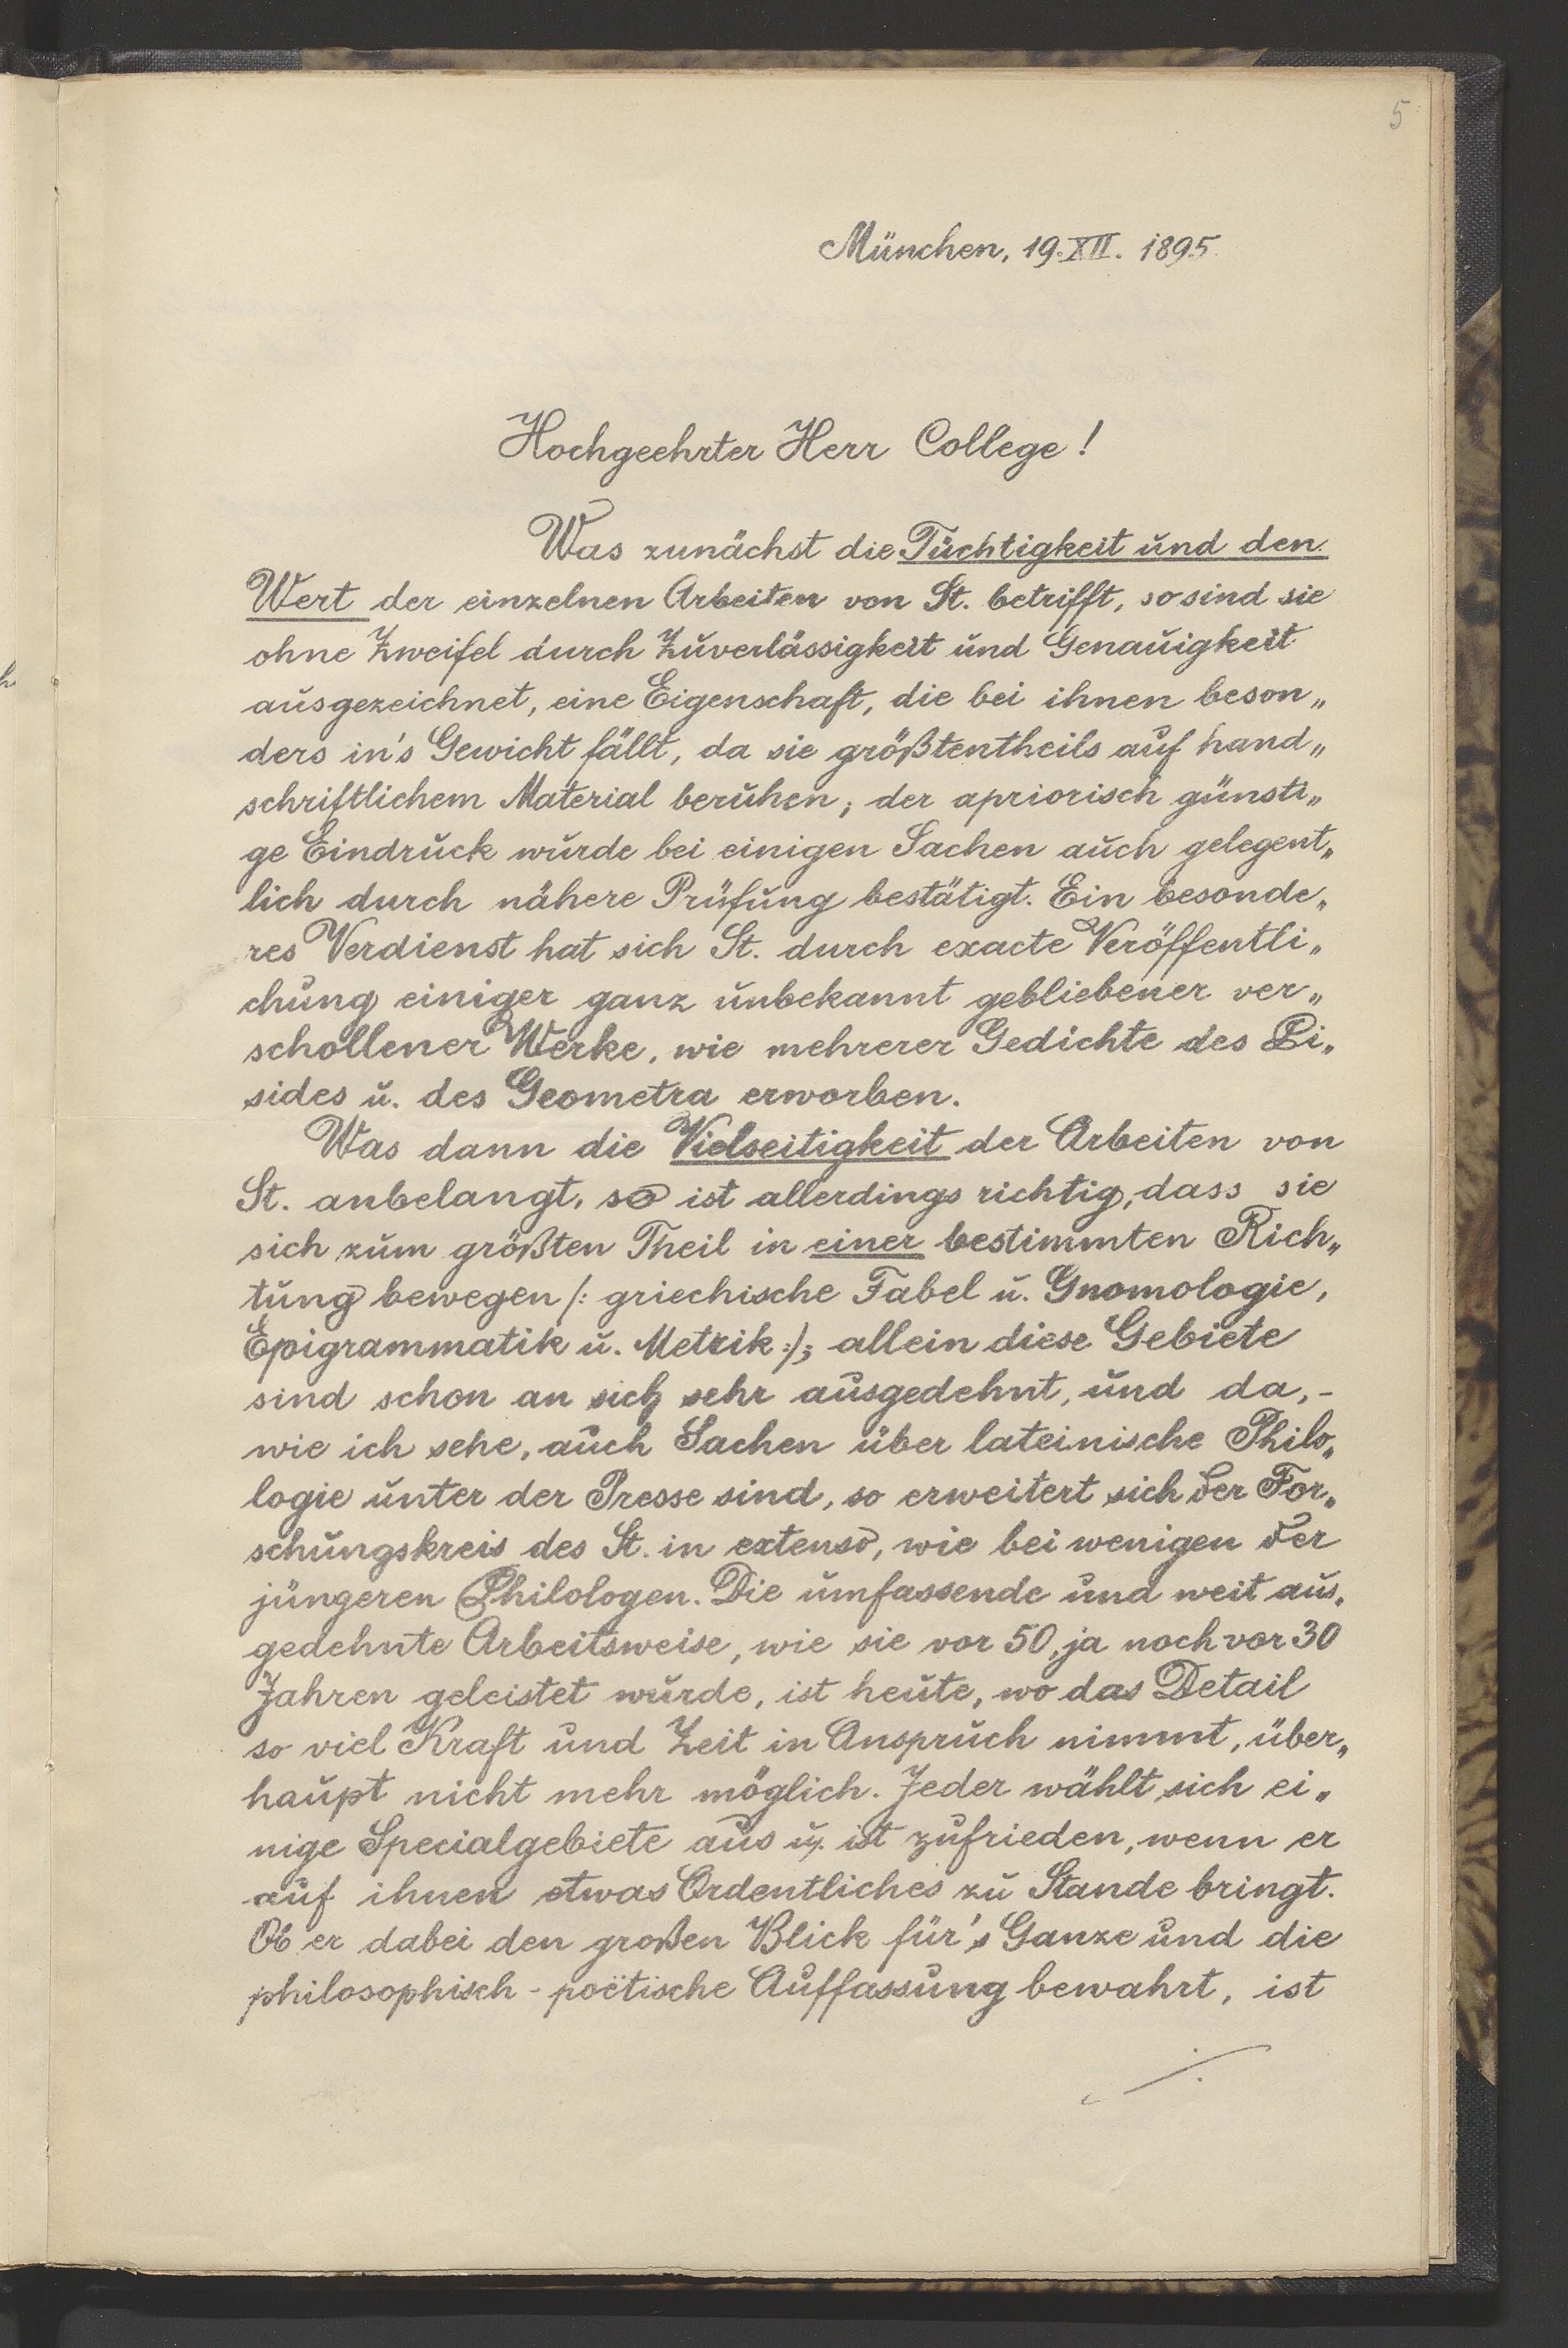 5
München, 19.XII. 1895
Hochgeehrter Herr College!
Was zunächst die Tüchtigkeit und den
Wert der einzelnen Arbeiten von St. betrifft, so sind sie
ohne Zweifel durch Zuverlässigkeit und Genauigkeit
ausgezeichnet, eine Eigenschaft, die bei ihnen beson„
ders in's Gewicht fällt, da sie größtentheils auf hand„
schriftlichem Material beruhen; der apriorisch günsti„
ge Eindruck wurde bei einigen Sachen auch gelegent„
lich durch nähere Prüfung bestätigt. Ein besonde„
res Verdienst hat sich St. durch exacte Veröffentli„
chung einiger ganz unbekannt gebliebener ver„
schollener Werke, wie mehrerer Gedichte des Pi„
sides u. des Geometra erworben.
Was dann die Vielseitigkeit der Arbeiten von
St. anbelangt, so ist allerdings richtig, dass sie
sich zum größten Theil in einer bestimmten Rich„
tung bewegen /: griechische Fabel u. Gnomologie,
Epigrammatik u. Metrik :/; allein diese Gebiete
sind schon an sich sehr ausgedehnt, und da, -
wie ich sehe, auch Sachen über lateinische Philo„
logie unter der Presse sind, so erweitert sich der For„
schungskreis des St. in extenso, wie bei wenigen der
jüngeren Philologen. Die umfassende und weit aus„
gedehnte Arbeitsweise, wie sie vor 50, ja noch vor 30
Jahren geleistet wurde, ist heute, wo das Detail
so viel Kraft und Zeit in Anspruch nimmt, über„
haupt nicht mehr möglich. Jeder wählt sich ei„
nige Specialgebiete aus u. ist zufrieden, wenn er
auf ihnen etwas Ordentliches zu Stande bringt.
Ob er dabei den großen Blick für's Ganze und die
philosophisch - poëtische Auffassung bewahrt, ist
./.